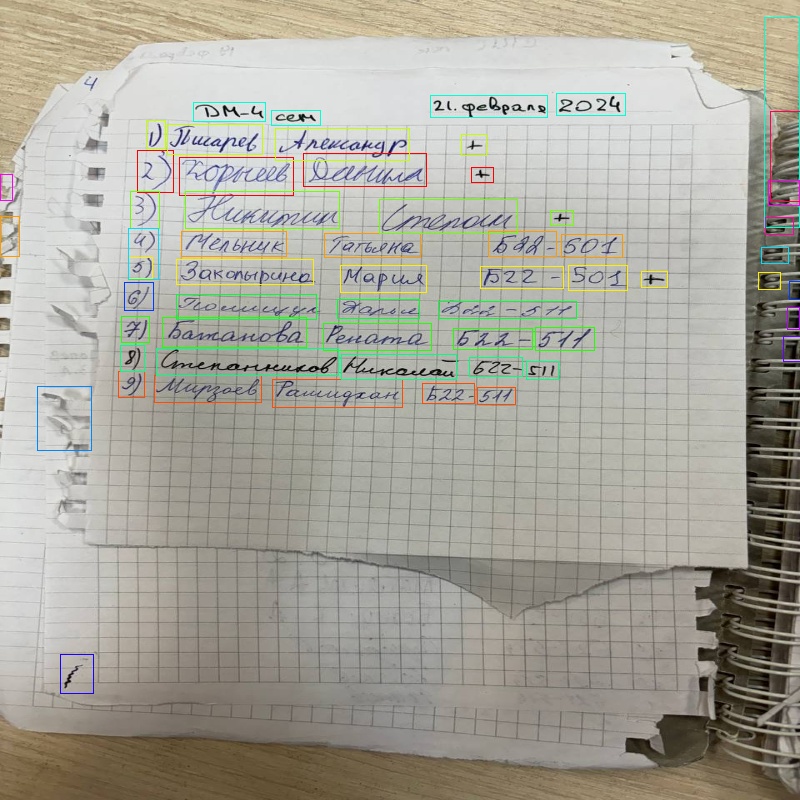 4
DM-4 сем 21. февраля 2024
1) Писарев Александр +
2) Корнеев Данила +
3) Никитин Степан +
4) Мельник Татьяна Б22-501
5) Закопырина Мария Б22-501 +
6) Полищук Дарья Б22-511
7) Бажанова Рената Б22-511
8) Степанников Николай Б22-511
9) Мирзоев Рашидхан Б22-511